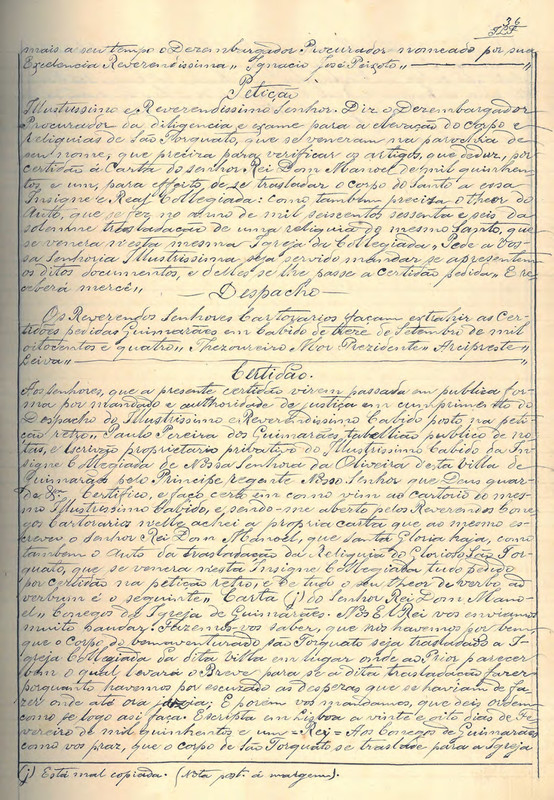 36
mais a seu tempo o Dezembargador Procurador nomeado por sua
Excelencia Reverendissima,, Ignacio José Peixoto,,
Petição
Illustrissimo e Reverendissimo Senhor. Diz o Dezembargador
Procurador da diligencia e exame para a elevação do Corpo e
Reliquias de São Torquato, que se veneram na parochia de
seu nome, que preciza para verificar os artigos, que deduz, por
certidão a Carta do senhor Rei Dom Manoel de mil quinhen-
tos e um, para effeito, de se trasladar o Corpo do Santo a essa
Insigne e Real Collegiada: como tambem preciza o theor do
Auto, que se fez no anno de mil seiscentos sessenta e seis da
solemne trasladação de uma reliquia do mesmo Santo, que
se venera n'esta mesma Igreja da Collegiada,, Pede a Vos-
sa Senhoria Illustrissima seja servido mandar se apresentem
os ditos documentos, e d'elles se lhe passe a certidão pedida,, E re-
ceberá mercê,,
Despacho
Os Reverendos Senhores Cartorarios façam extrahir as Cer-
tidões pedidas Guimarães em Cabido de treze de Setembro de mil
oitocentos e quatro,, Thezoureiro Mor Prezidente,, Arcipreste,,
Leiva,,
Certidão.
Aos senhores, que a presente certidão virem passada em publica for-
ma por mandado e authoridade de justiça em cumprimento do
Despacho do Illustrissimo e Reverendissimo Cabido posto na peti-
ção retro,, Paulo Pereira dos Guimarães tabellião publico de no-
tas, e escrivão proprietario privativo do Illustrissimo Cabido da In-
signe Collegiada de Nossa Senhora da Oliveira d'esta villa de
Guimarães pelo Principe regente Nosso Senhor que Deus guar-
de Certifico, e faço certo em como vim ao cartorio do mes-
mo Illustrissimo Cabido, e sendo-me aberto pelos Reverendos Cone-
gos Cartorarios n'elle achei a propria carta que ao mesmo es-
creveu o senhor Rei Dom Manoel, que santa Gloria haja, como
tambem o Auto da trasladação da Reliquia do Glorioso São Tor-
quato, que se venera n'esta Insigne Collegiada tudo pedido
por certidão na petição retro, e de tudo o seu theor de verbo ad
verbum é o seguinte,, Carta (j) do Senhor Rei Dom Mano-
el,, Conegos da Igreja de Guimarães. Nós El Rei vos enviamos
muito saudar. Fazemos-vos saber, que nós havemos por bem,
que o Corpo do bemaventurado são Torquato seja trasladado a I-
greja Collegiada da dita villa em lugar onde ao Prior parecer
com o qual levará o Breve para se a dita trasladação fazer
porquanto havemos por escuzado as despezas que se haviam de fa-
zer onde até ora E porém vos mandamos, que deis ordem
como se logo assi faça. Escripta em Lisboa a vinte e oito dias de Fe-
vereiro de mil quinhentos e um = Rei = Aos Conegos de Guimarães
como vos praz, que o corpo de São Torquato se traslade para a Igreja
(j) Está mal copiada. (Nota posta á margem).